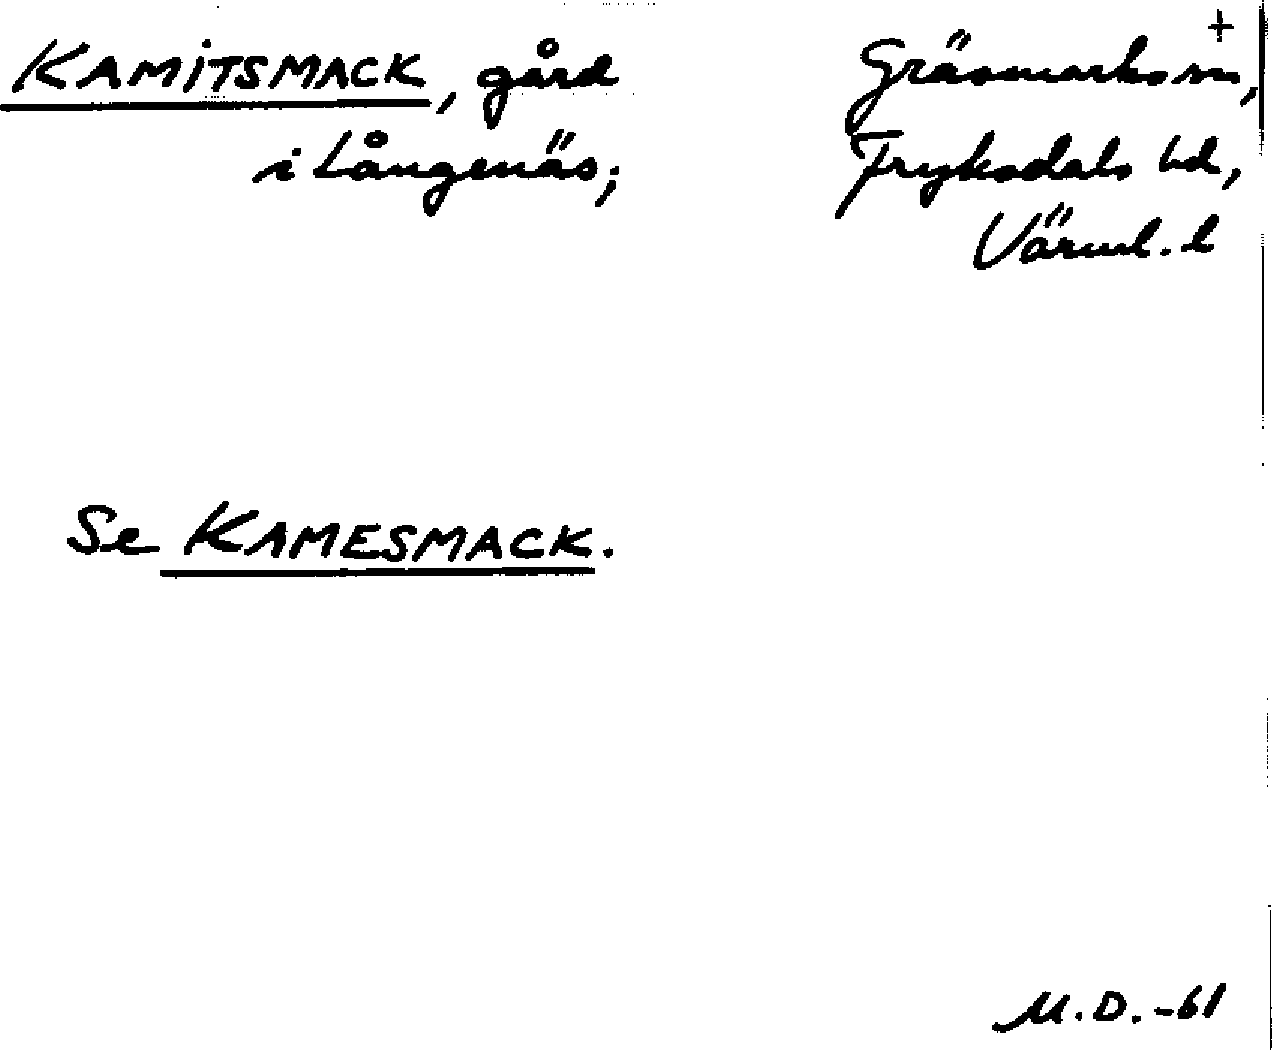 KAMITSMACK, gård
i Långenäs;
Gräsmarks sn, +
Fryksdals hd,
Värml. l
Se KAMESMACK.
M.D. -61